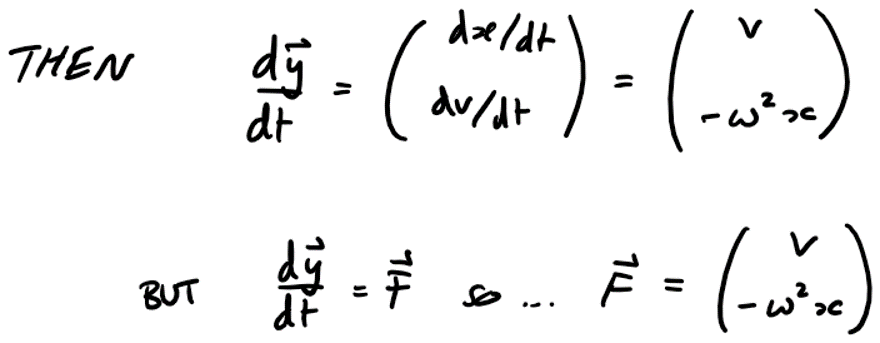 THEN $\frac{d\vec{y}}{dt} = \begin{pmatrix} dx/dt \\ dv/dt \end{pmatrix} = \begin{pmatrix} v \\ -\omega^2 x \end{pmatrix}$
BUT $\frac{d\vec{y}}{dt} = \vec{F}$ so ... $\vec{F} = \begin{pmatrix} v \\ -\omega^2 x \end{pmatrix}$